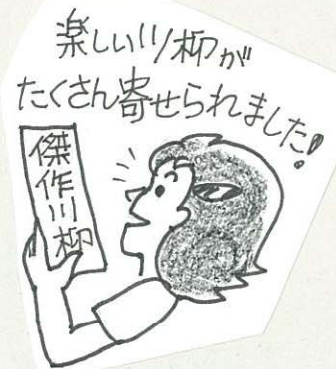 楽しい川柳が
たくさん寄せられました!
傑作川柳